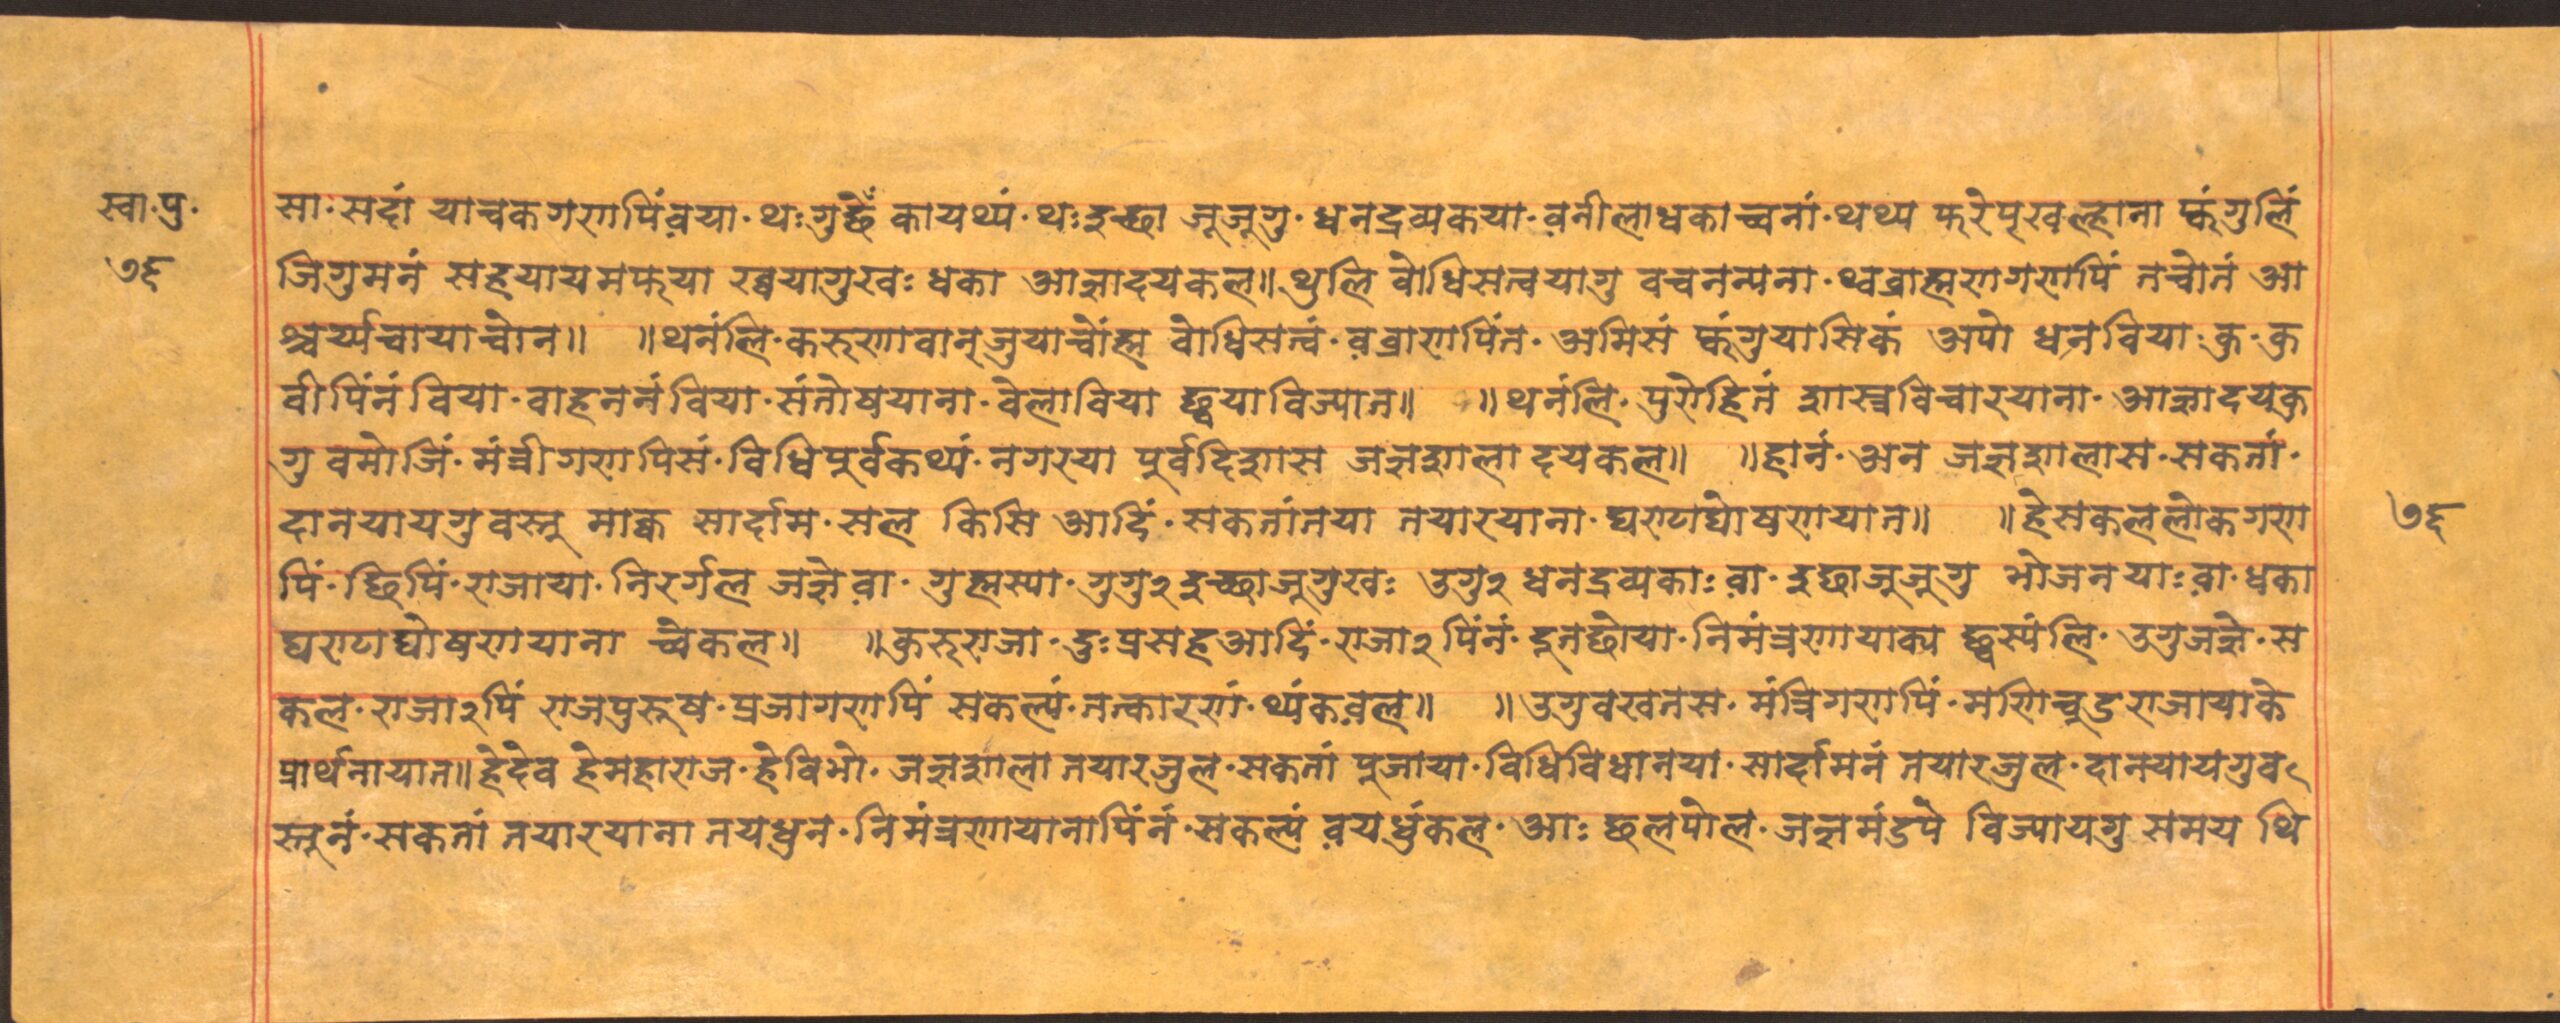 स्वा·पु·
७६
सा·सदां याचकगणपिंव़या·थःगुछेँ कायथ्यं·थःइच्छा जूजूगु·धनद्रव्यकया·व़नीलाधकाच्वनां·थथ्य फरेपृखल्हाना फ्कंगुलिं
जिगुमनं सहयायमफया खँयागुखः धका आज्ञादयकल॥ थुलि बोधिसत्वयागु वचनन्यना·थ्वब्राह्मणगणपिं तचोतं आ
श्चर्य्यचायाच्वोन॥ ॥थनंलि·करुणावान्जुयाच्वोंह्म बोधिसत्वं·व़ब्राणपिंत·अमिसं फ्कंगुयासिकं अपो धनबिया·कु·कु
वीपिंनं बिया·वाहननंबिया·संतोषयाना·वेलाबिया छ्वयाविज्यात॥ ॥थनंलि·पुरोहितं शास्त्रविचारयाना·आज्ञादयकु
गु बमोजिं·मंत्रीगणपिसं·विधिपुर्वकथ्यं·नगरया पुर्वदिशास जज्ञशाला दयकल॥ ॥हानं·अन जज्ञशालास·सकतां·
दानयायगुवस्तू माक्व सार्दाम·सल किसि आदिं·सकतांतया तयारयाना·घण्टाघोषणायात॥ ॥हेसकललोकगण
पिं·छिपिं·राजाया·निरर्गल जज्ञेव़ा·गुह्मस्या·गुगु२इच्छाजूगुखः उगु२ धनद्रव्यकाःव़ा·इछाजूजूगु भोजनयाःव़ा·धका
घण्टाघोषणायाना च्वेकल॥ ॥कुरुराजा·दुःप्रसहआदिं·राजा२पिंनं·दूतछोया·निमंत्रणायाक्य छ्वस्यंलि·उगुजज्ञे·स
कल·राजा२पिं राजपुरुष·प्रजागणपिं सकल्यं·तत्कारणं·थ्यंकव़ल॥ ॥उगुवखतस·मंत्रिगणपिं·मणिचूडराजायाके
प्रार्थनायात॥ हेदेव हेमहाराज·हेविभो·जज्ञशाला तयारजुल·सकतां पूजाया·विधिविधानया·सार्दामनं तयारजुल·दानयायगुव
स्तूनं·सकतां तयारयाना तयधुन·निमंत्रणायानापिंनं·सकल्यं व़यधुंकल·आः छलपोल·जज्ञमंडपे विज्यायगु समय थि
७६